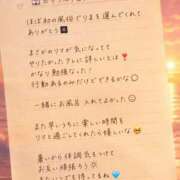 ほぼ初の風俗でりまを選んでくれて
ありがとう
まさかのリマが気になってて
やりたかったプレに詳しいとは
かなり勉強なった！
行動あるのみだけどできるかな
一緒にお風呂入れてよかった
また早いうちに楽しい時間を
リマと過ごしてくれたら嬉しいな
暑いから体調気をつけて
お互い頑張ろう
またいつでも待ってるね